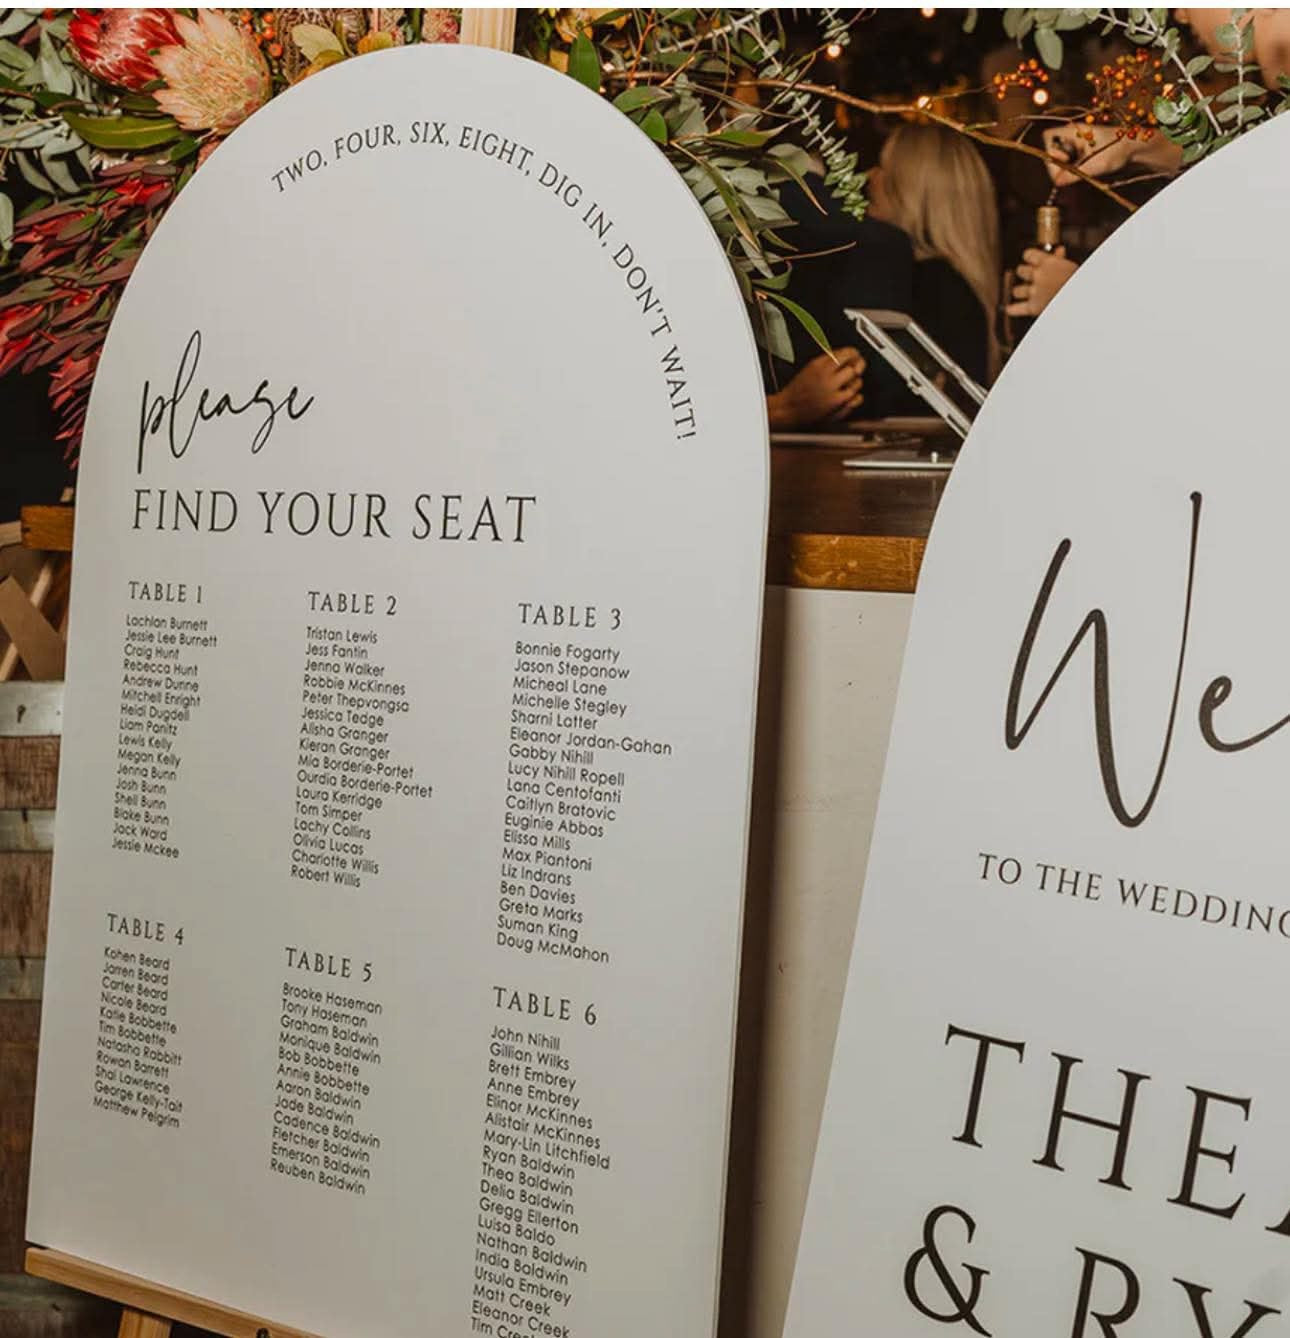 TWO, FOUR, SIX, EIGHT, DIG IN, DON'T WAIT!
please
FIND YOUR SEAT
TABLE 1
Lachlan Burnett
Jessie Lee Burnett
Craig Hunt
Rebecca Hunt
Andrew Dunne
Mitchell Enright
Heidi Dugdell
Liam Panitz
Lewis Kelly
Megan Kelly
Jenna Bunn
Josh Bunn
Shell Bunn
Blake Bunn
Jack Ward
Jessie Mckee
TABLE 2
Tristan Lewis
Jess Fantin
Jenna Walker
Robbie McKinnes
Peter Thepvongsa
Jessica Tedge
Alisha Granger
Kieran Granger
Mia Borderie-Portet
Ourdia Borderie-Portet
Laura Kerridge
Tom Simper
Lachy Collins
Olivia Lucas
Charlotte Willis
Robert Willis
TABLE 3
Bonnie Fogarty
Jason Stepanow
Micheal Lane
Michelle Stegley
Sharni Latter
Eleanor Jordan-Gahan
Gabby Nihill
Lucy Nihill Ropell
Lana Centofanti
Caitlyn Bratovic
Euginie Abbas
Elissa Mills
Max Piantoni
Liz Indrans
Ben Davies
Greta Marks
Suman King
Doug McMahon
TABLE 4
Kohen Beard
Jarren Beard
Carter Beard
Nicole Beard
Katie Bobbette
Tim Bobbette
Natasha Rabbitt
Rowan Barrett
Shai Lawrence
George Kelly-Tait
Matthew Pelgrim
TABLE 5
Brooke Haseman
Tony Haseman
Graham Baldwin
Monique Baldwin
Bob Bobbette
Annie Bobbette
Aaron Baldwin
Jade Baldwin
Cadence Baldwin
Fletcher Baldwin
Emerson Baldwin
Reuben Baldwin
TABLE 6
John Nihill
Gillian Wilks
Brett Embrey
Anne Embrey
Elinor McKinnes
Alistair McKinnes
Mary-Lin Litchfield
Ryan Baldwin
Thea Baldwin
Delia Baldwin
Gregg Ellerton
Luisa Baldo
Nathan Baldwin
India Baldwin
Ursula Embrey
Matt Creek
Eleanor Creek
Tim
We
TO THE WEDDING
THE
& RY